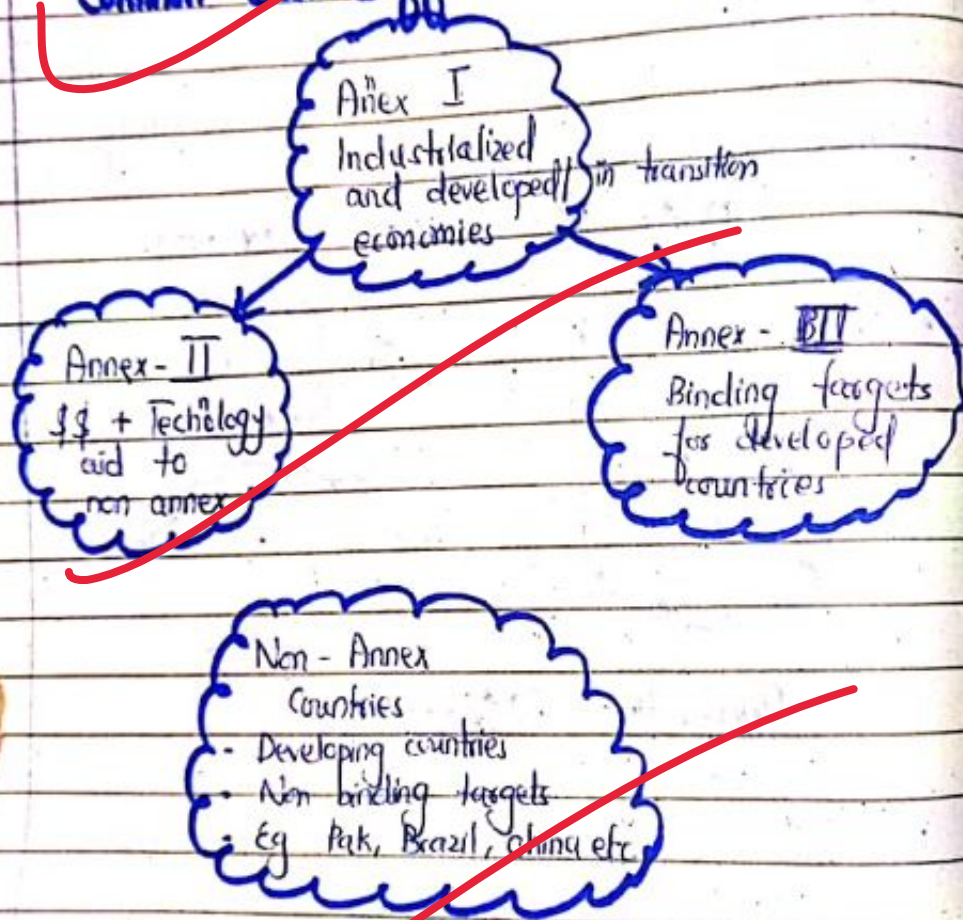 Annex I
Industrialized
and developed / in transition
economies
Annex - II
$$ + Technology
aid to
non annex
Annex - BIII
Binding targets
for developed
countries
Non - Annex
Countries
- Developing countries
- Non binding targets
- Eg Pak, Brazil, China etc